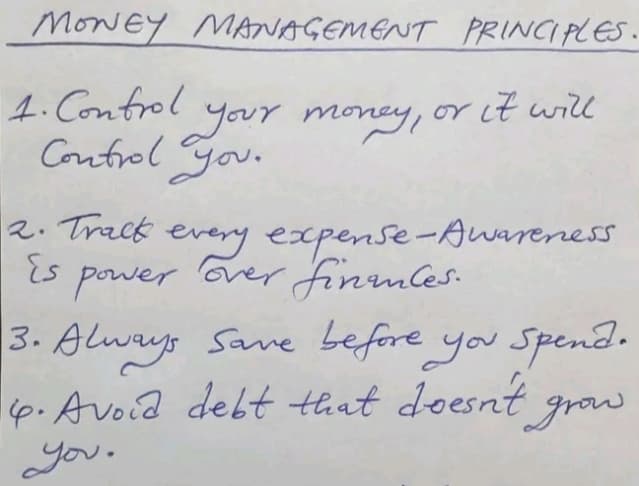 MONEY MANAGEMENT PRINCIPLES.
1. Control your money, or it will
Control you.
2. Track every expense-Awareness
is power over finances.
3. Always Save before you Spend.
4. Avoid debt that doesn't grow
you.